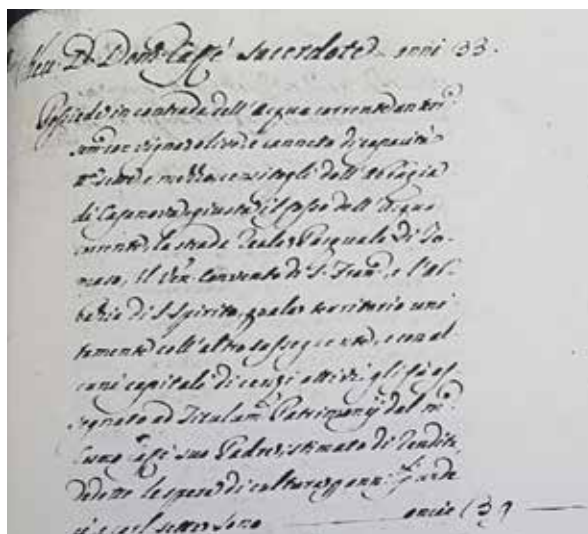 D. Dom. Caffè sacerdote anni 33.
Possiede in contrada dell'Acqua corrente un ter.
con vigna, olive, e canneto di capacità
sette, e mezzo, censi dell'Abbazia
di Casanova, giusta il fosso dell'Acqua
corrente, la strada Reale, Pasquale Di To-
maso, Il Ven. Convento di S. Fran. e l'Ab-
bazia di S. Spirito, quale territorio uni
tamente coll'altro susseguente, e con al
cuni capitali di censi attivi gli fù as
segnato ad Titulum Patrimonij dal m.
Cosmo Caffè suo Padre, stimato di rendita,
dedotte le spese di coltura,
sette, sono oncie 39